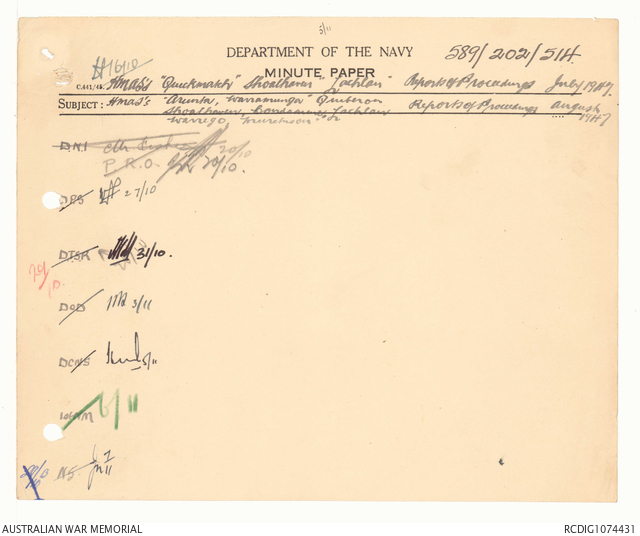 5/11
DEPARTMENT OF THE NAVY
589/202/514
16/10
MINUTE PAPER
C.441/45.
HMAS's "Quickmatch" Shoalhaven Lachlan Reports of Proceedings July 1947
SUBJECT: HMAS's Arunta, Warramunga Quiberon Reports of Proceedings August 1947
Shoalhaven, Condamine, Lachlan
Warrego, Murchison
D.N.I 20/10
P.R.O. 20/10.
DPS 27/10
DTSR 31/10.
DOD 3/11
DCNS 5/11
6/11
NS 7/11
AUSTRALIAN WAR MEMORIAL
RCDIG1074431